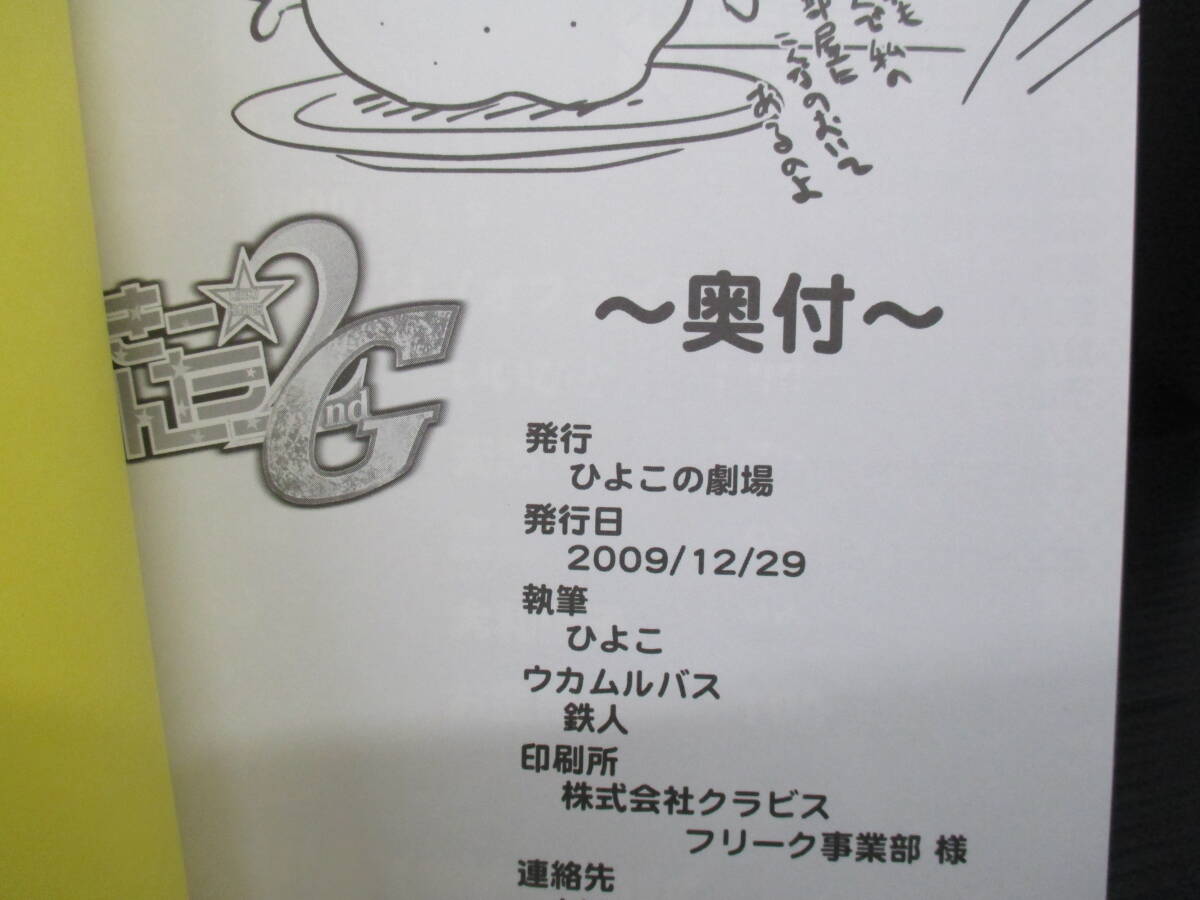 私の
部屋に
こんなのおいて
あるのよ
もこ
nd
G
〜奥付〜
発行
ひよこの劇場
発行日
2009/12/29
執筆
ひよこ
ウカムルバス
鉄人
印刷所
株式会社クラビス
フリーク事業部 様
連絡先